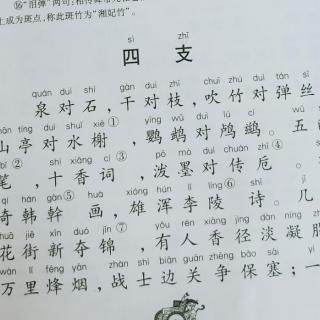 ⑯“泪弹”两句：相传舜帝
上成为斑点，称此斑竹为“湘妃竹”。
sì zhī
四 支
quán duì shí gān duì zhī chuī zhú duì tán sī
泉对石，干对枝，吹竹对弹丝
tíng duì shuǐ xiè ① yīng wǔ duì lú cí wǔ
山亭对水榭，鹦鹉对鸬鹚。五
bǐ ② shí xiāng cí ③ pō mò duì chuán zhī
笔，十香词，泼墨对传卮。
qí hán gàn ⑤ huà xióng hún lǐ líng ⑥ shī jǐ
奇韩幹画，雄浑李陵诗。几
huā jiē xīn duó jǐn yǒu rén xiāng jìng dàn níng zhī
花街新夺锦，有人香径淡凝脂
wàn lǐ fēng yān zhàn shì biān guān zhēng bǎo sài yī
万里烽烟，战士边关争保塞；一